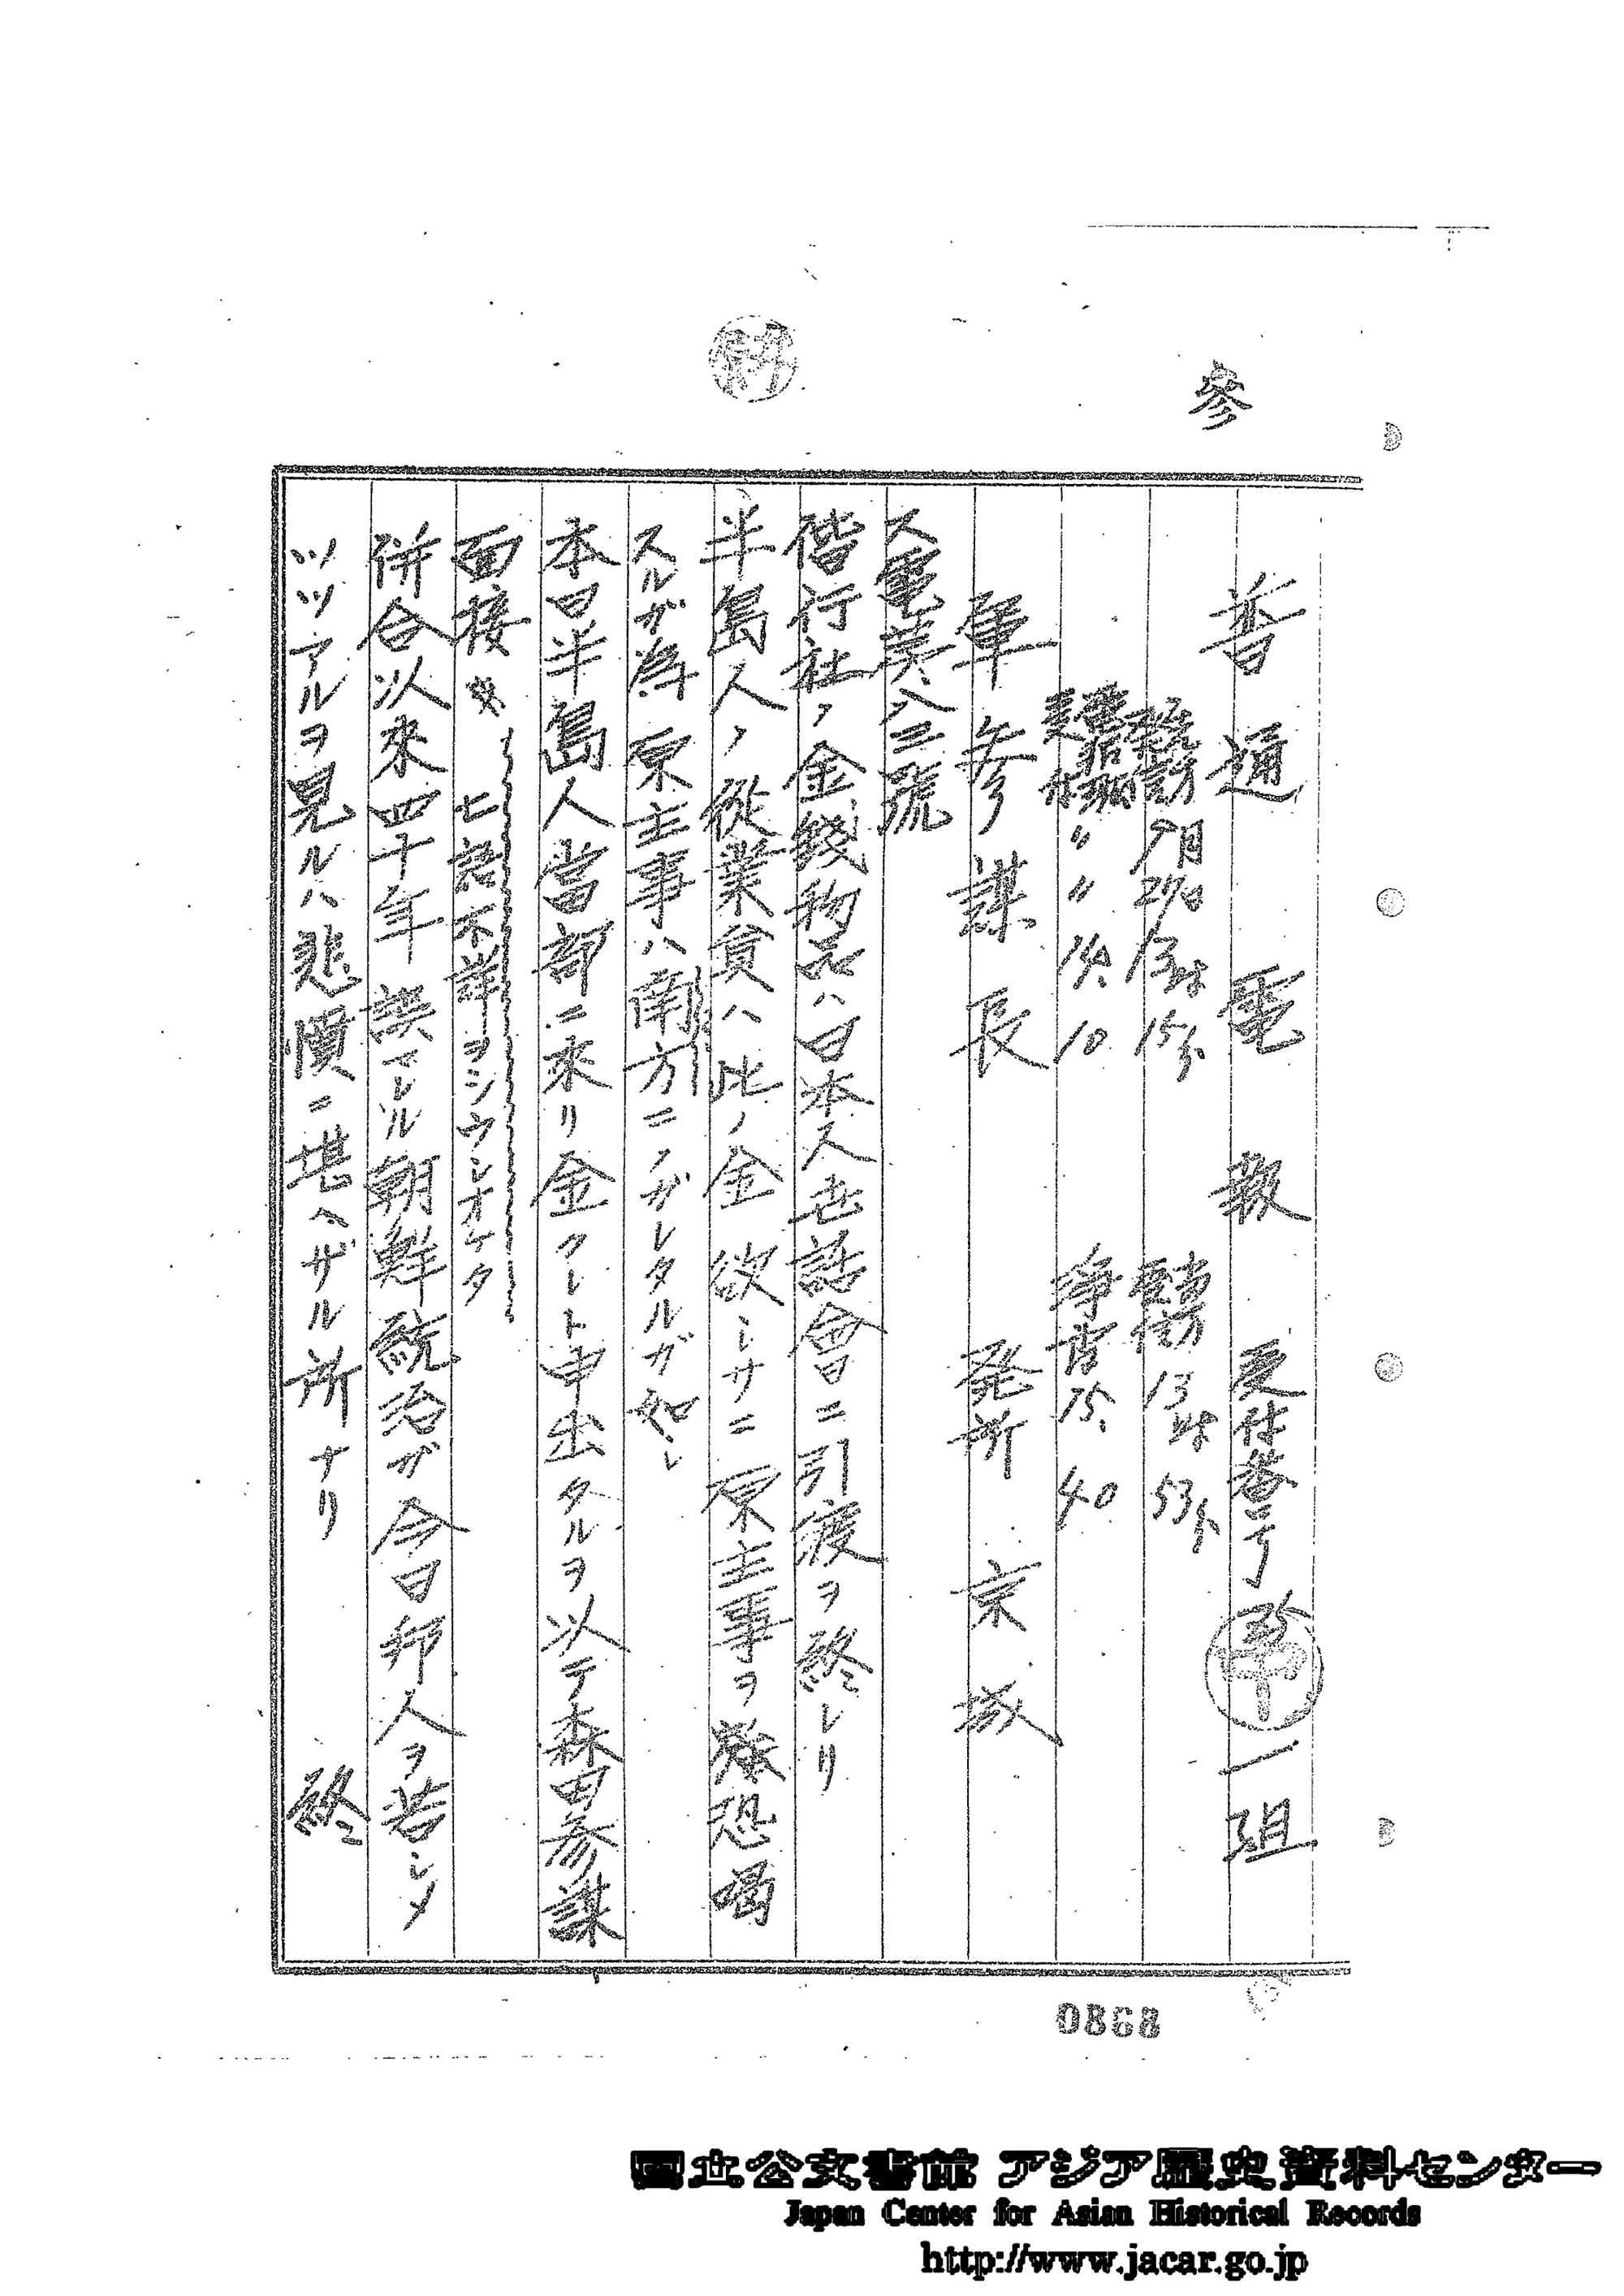 参
普通電報 受付番号 一狙
9月27日13時15分 受付13時53分
受付〃〃14、10 浄書15、40
軍参謀長 発所 京城
ス電美、八三號
偕行社ノ金銭物品ハ日本人世話會ニ引渡ヲ終レリ
半島人ノ従業員ハ此ノ金欲シサニ原主事ヲ恐喝
スルガ為原主事ハ南方ニノガレタルガ如シ
本日半島人當部ニ來リ金クレト申出タルヲ以テ森田参謀
面接 七語不詳ヲシウレオケタ
併合以來四十年誤マレル朝鮮統治ガ今日邦人ヲ苦シメ
ツツアルヲ見ルハ悲憤ニ堪ヘザル所ナリ 終
0868
国立公文書館 アジア歴史資料センター
Japan Center for Asian Historical Records
http://www.jacar.go.jp